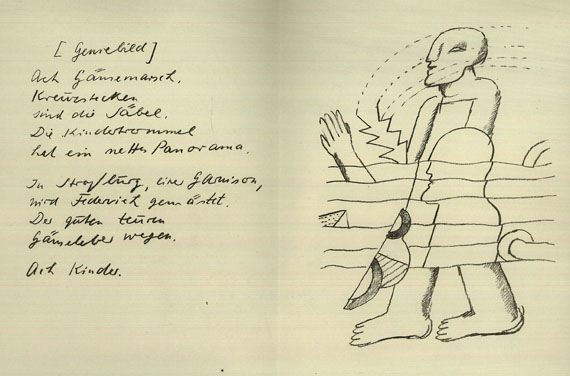 [Genrebild]
Ach Gänsemarsch.
Kreuzstecken
sind die Säbel.
Die Kindertrommel
hat ein nettes Panorama.
In Straßburg, einer Garnison,
wird Federvieh gemästet.
Der guten teuren
Gänseleber wegen.
Ach Kinder.